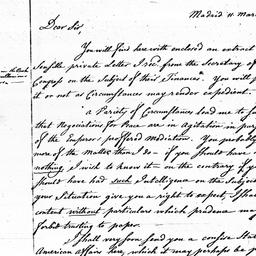 Madrid 11 Mar
Dear Sir,
You will find here with enclosed an extract
private Letter I rec.d from the Secretary of
Congress on the Subject of their Finances. You will
it or not as Circumstances may render expedient.
a Variety of Circumstances lead me to
that Negociations for Peace are in Agitation in
of the Emperor proffered Mediation. You
more of the Matter than I do – if you should have
nothing, I wish to know it – on the contrary if
should have had such Intelligence on the Subject
your Situation give you a right to expect, I
content without particulars which prudence may
forbid trusting to paper.
I shall very soon send you a concise State
American Affairs here, which it may perhaps be